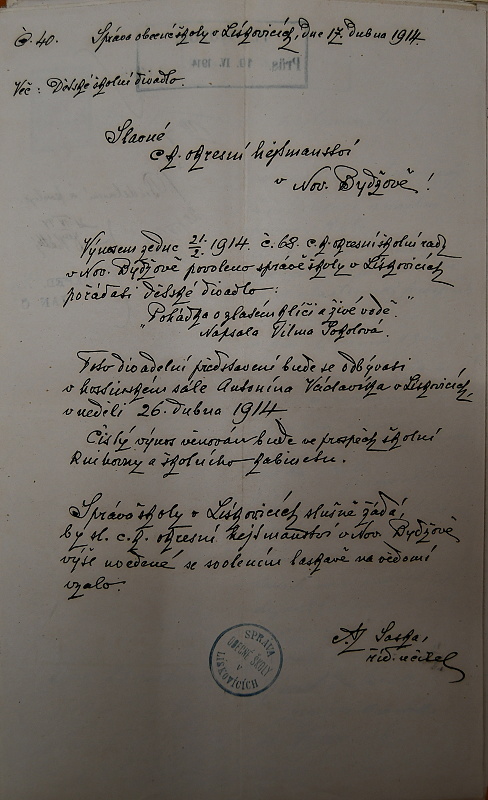 Č. 40. Správa obecné školy v Liskovicích, dne 17. dubna 1914.
Präs. 19. IV. 1914
Věc: Dětské školní divadlo.
Slavné
c. k. okresní hejtmanství
v Nov. Bydžově!
Výnosem ze dne 21/2. 1914. č. 68. c. k. okresní školní rady
v Nov. Bydžově povoleno správě školy v Liskovicích
pořádati dětské divadlo:
"Pohádka o zlatém klíči a živé vodě."
Napsala Vilma Sokolová.
Toto divadelní představení bude se odbývati
v hostinském sále Antonína Václavíka v Liskovicích,
v neděli 26. dubna 1914
Čistý výnos věnován bude ve prospěch školní
knihovny a školního kabinetu.
Správa školy v Liskovicích slušně žádá,
by sl. c. k. okresní hejtmanství v Nov. Bydžově
výše uvedené se svolením laskavě na vědomí
vzalo.
Saska,
říd. učitel
SPRÁVA
OBECNÉ ŠKOLY
v
LISKOVICÍCH